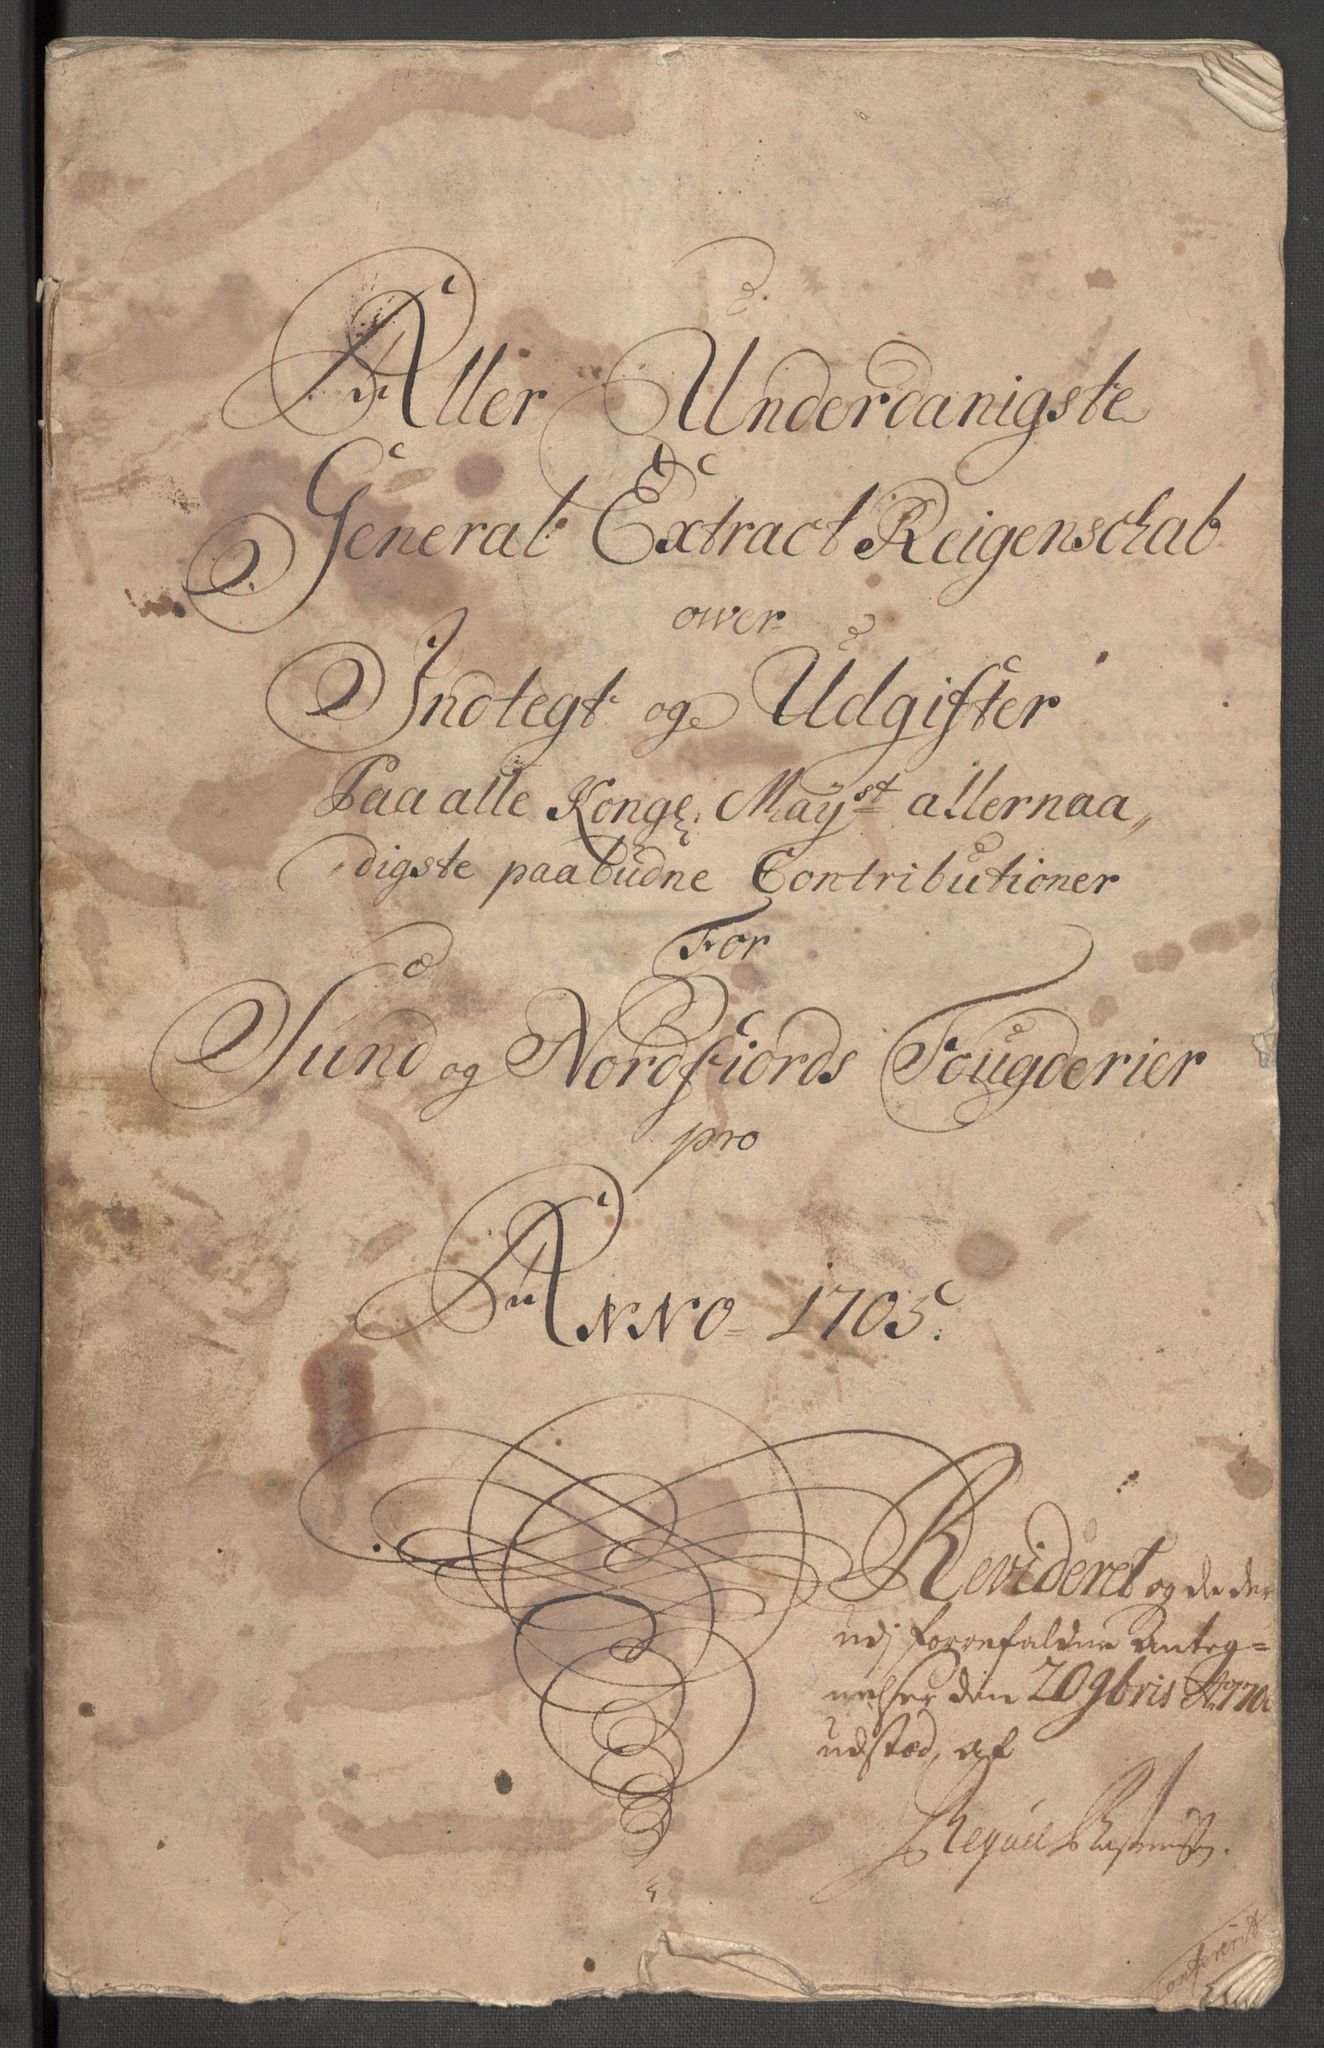 Aller Underdanigste
General Extract Reigenschab
over
Indtegt og Udgifter
Paa alle Kongl: Mayst allernaa„
digste paabudne Contributioner
For
Sund og Nordfiords Fougderier
pro
ANNO 1705.
Revideret og de der
udj forrefaldne Anteg=
nelser den 20 9bris Ao 170
udstæd, af
Confererit